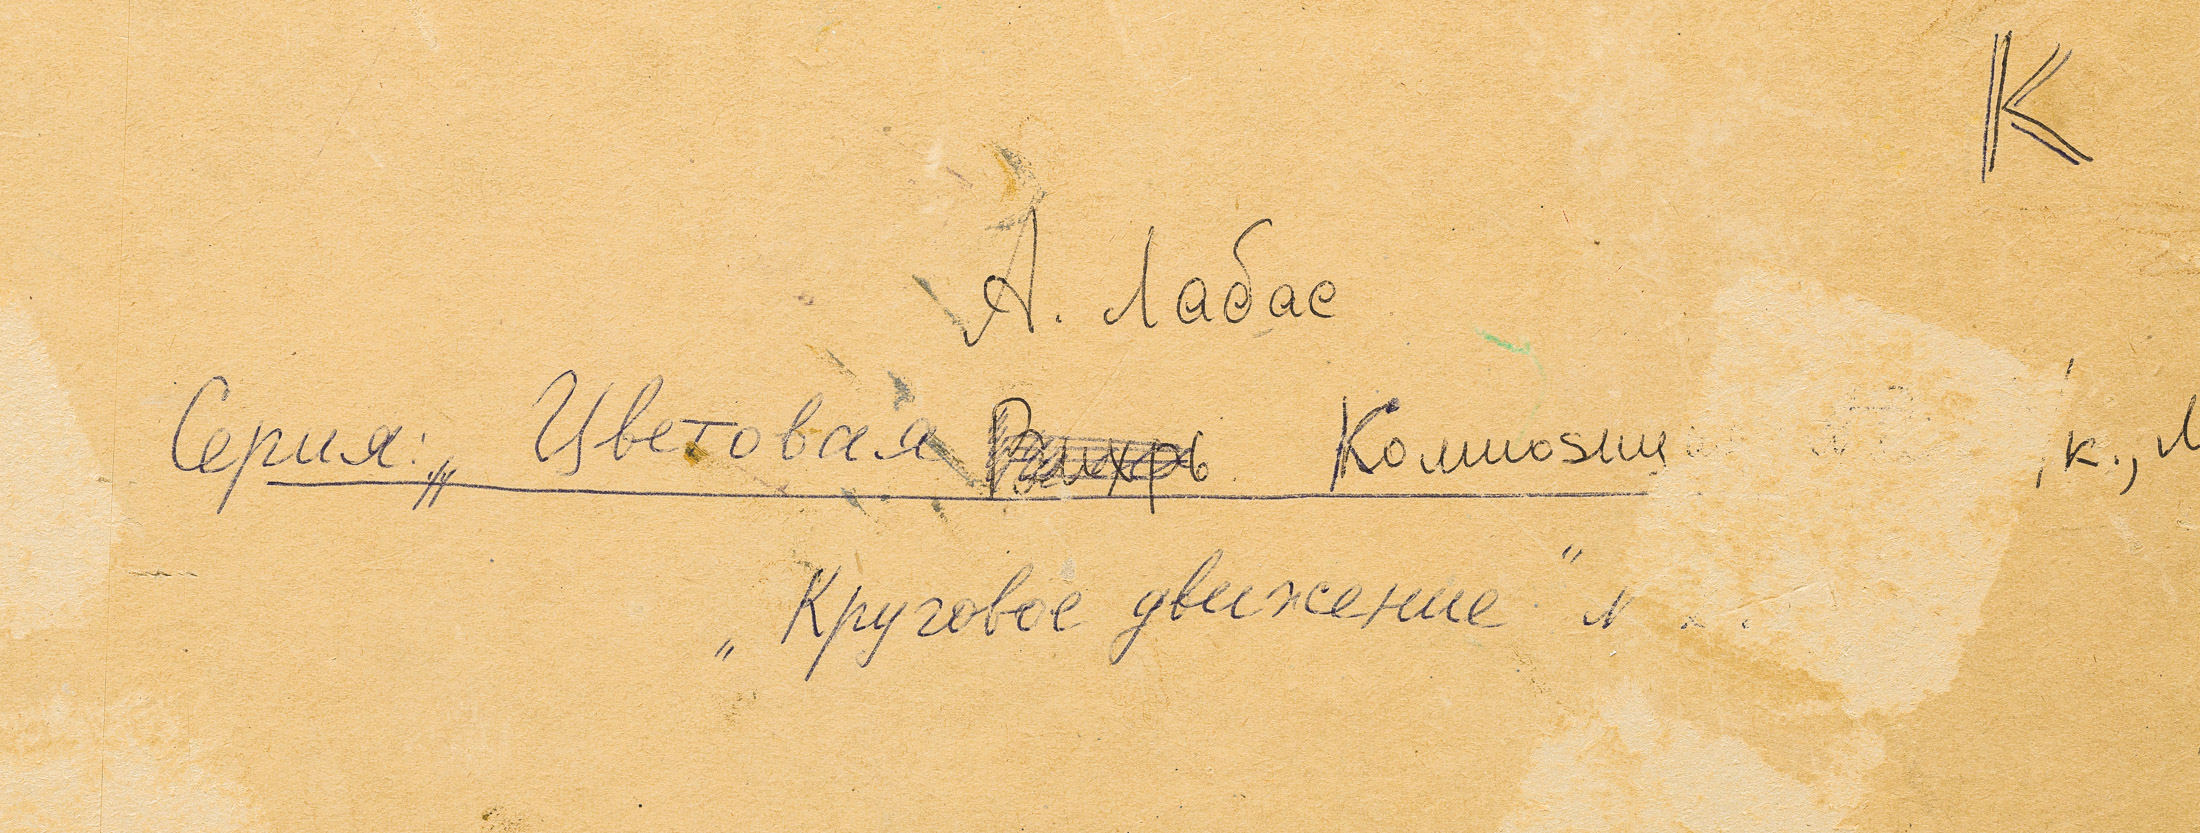 К
А. Лабас
Серия: „Цветовая Вихрь Композици к.,
„Круговое движение"